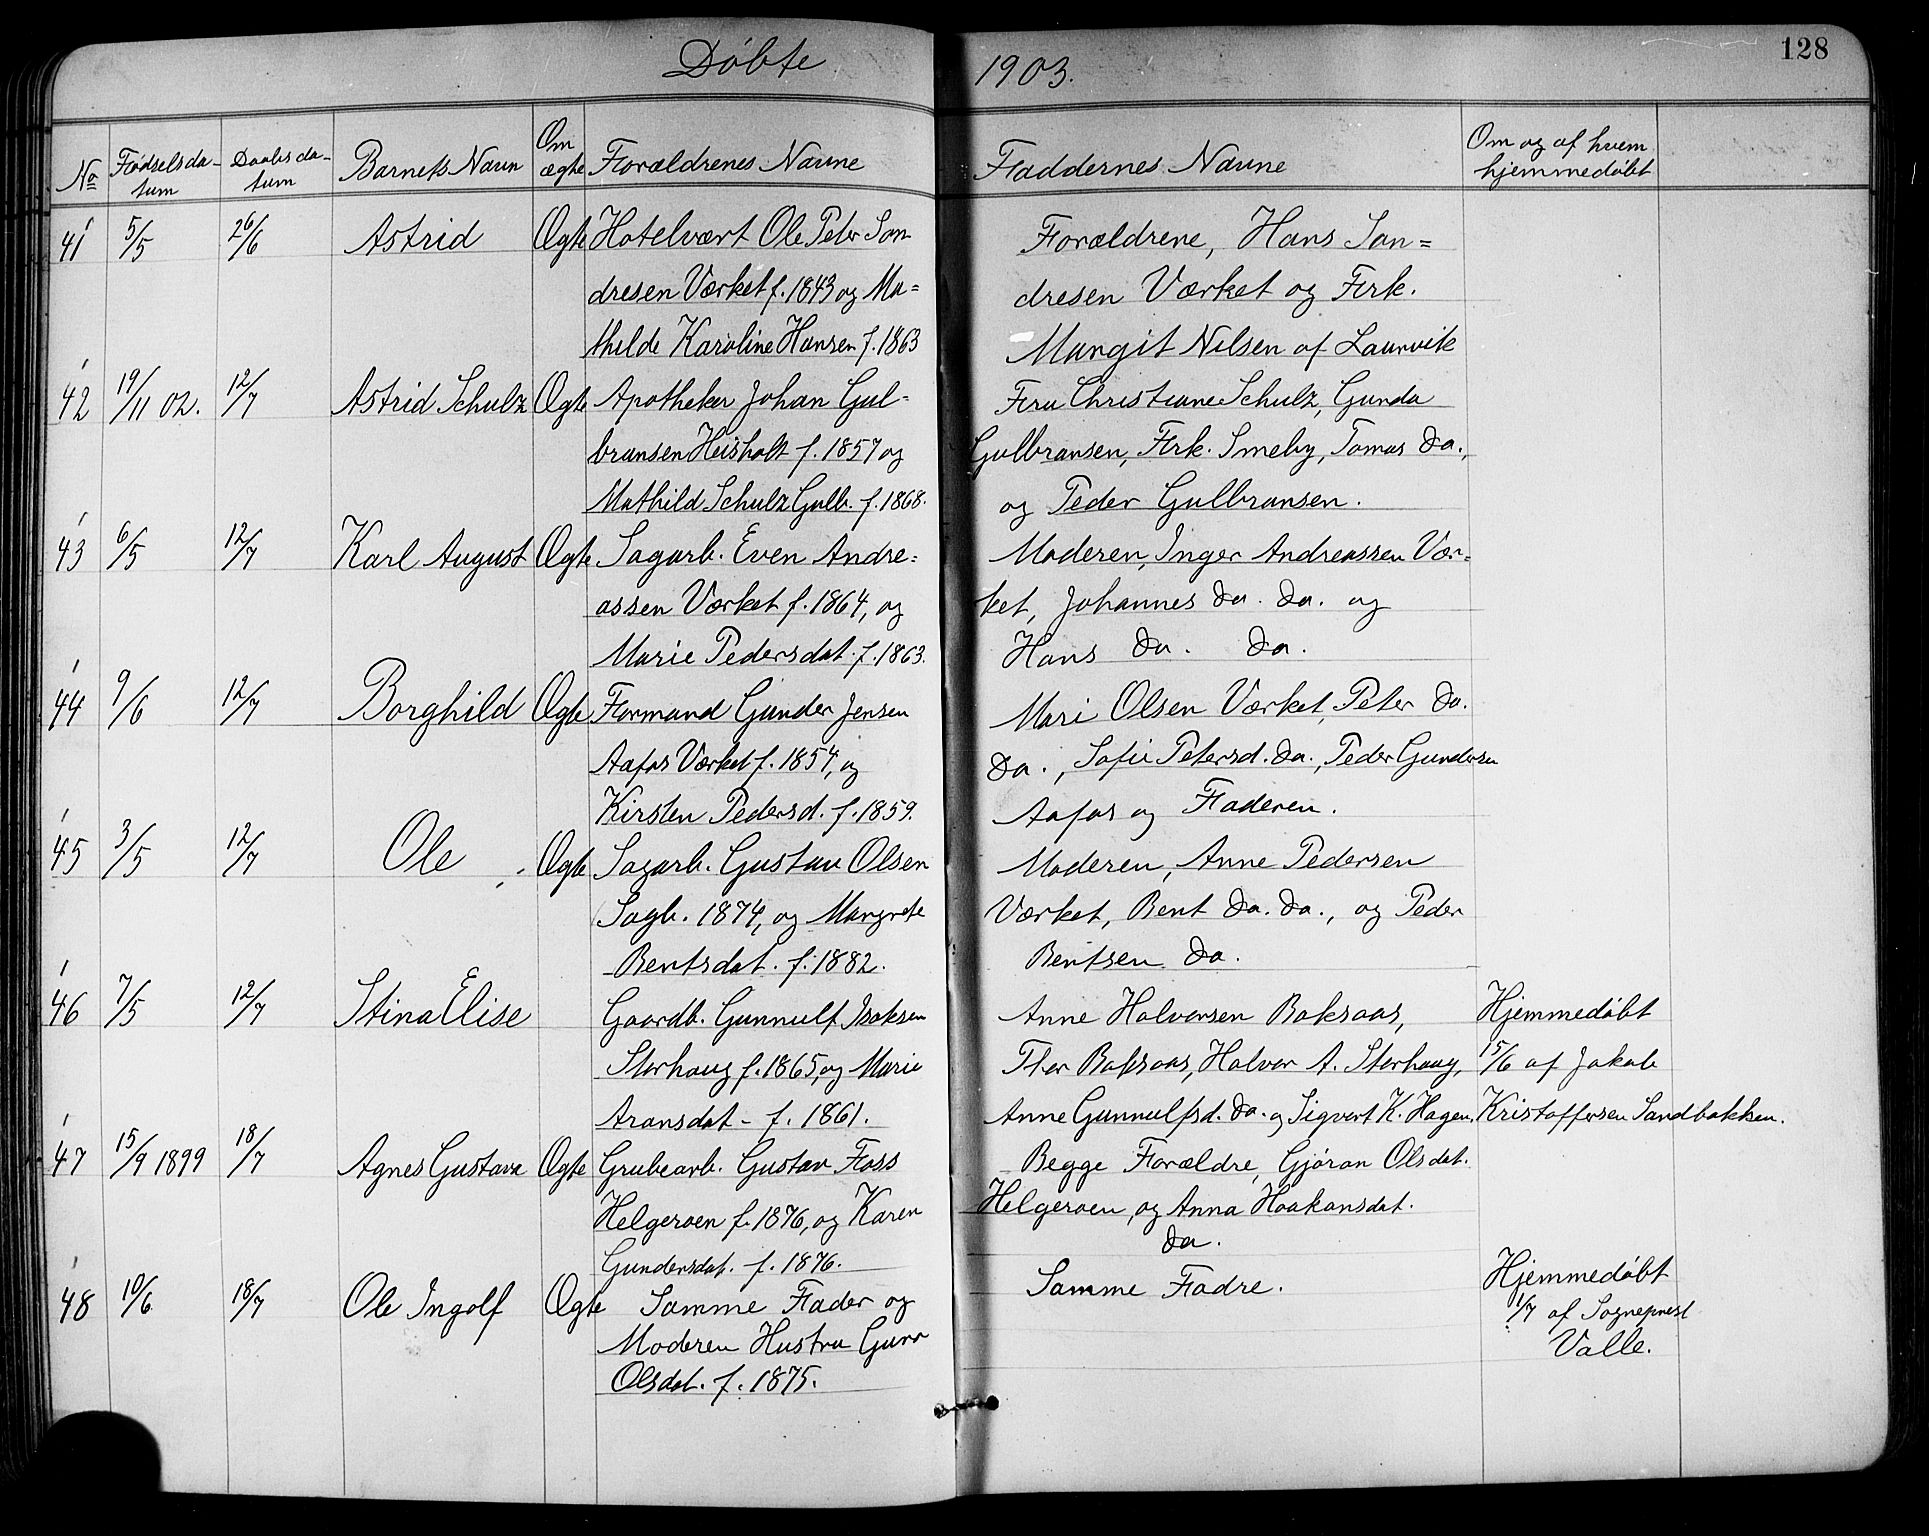 Døbte 1903. 128
No Fødselsdatum Daabsdatum Barnets Navn Om ægte Forældrenes Navne Faddernes Navne Om og af hvem hjemmedøbt
41 5/5 26/6 Astrid Ægte Hotelvært Ole Peter San- Forældrene, Hans San=
dresen Værket f. 1843 og Ma= dresen Værket og Frk.
thilde Karoline Hansen f. 1863 Margit Nilsen af Laurvik
42 19/11 02. 12/7 Astrid Schulz Ægte Apotheker Johan Gul- Fru Christiane Schulz, Gunda
bransen Heisholt f. 1857 og Gulbransen, Frk. Smeby, Tomas do.,
Mathild Schulz Gulb. f. 1868. og Peder Gulbransen.
43 6/5 12/7 Karl August Ægte Sagarb. Even Andre= Moderen, Inger Andreassen Vær=
assen Værket f. 1864, og ket, Johannes do. do. og
Marie Pedersdat. f. 1863. Hans do. do.
44 9/6 12/7 Borghild Ægte Formand Gunder Jensen Mari Olsen Værket, Peter do.
Aafos Værket f. 1854, og do., Sofie Petersd. do., Peder Gundersen
Kirsten Pedersd. f. 1859. Aafos og Faderen.
45 3/5 12/7 Ole Ægte Sagarb. Gustav Olsen Moderen, Anne Pedersen
Sagb. 1874, og Margrete Værket, Bent do. do., og Peder
Bentsdat. f. 1882. Bentsen do.
46 7/5 12/7 Stina Elise Gaardb. Gunnulf Isaksen Anne Halvorsen Baksaas, Hjemmedøbt
Storhaug f. 1865, og Marie Ther Baksaas, Halvor A. Storhaug, 15/6 af Jakob
Aronsdat - f. 1861. Anne Gunnulfsd. do. og Sigvart K. Hagen. Kristoffersen Sandbakken.
47 15/9 1899 18/7 Agnes Gustava Ægte Grubearb. Gustav Foss Begge Forældre, Gjøran Olsdat.
Helgeroen f. 1876, og Karen Helgeroen, og Anna Haakonsdat.
Gundersdat. f. 1876. do.
48 10/6 18/7 Ole Ingolf Ægte Samme Fader og Samme Fadre. Hjemmedøbt
Moderen Hustru Guro 1/7 af Sogneprest
Olsdat. f. 1875. Valle.